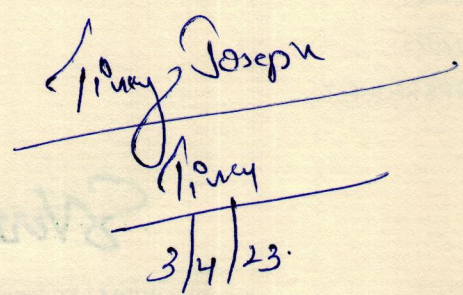 Tincy Joseph
Tincy
3/4/23.